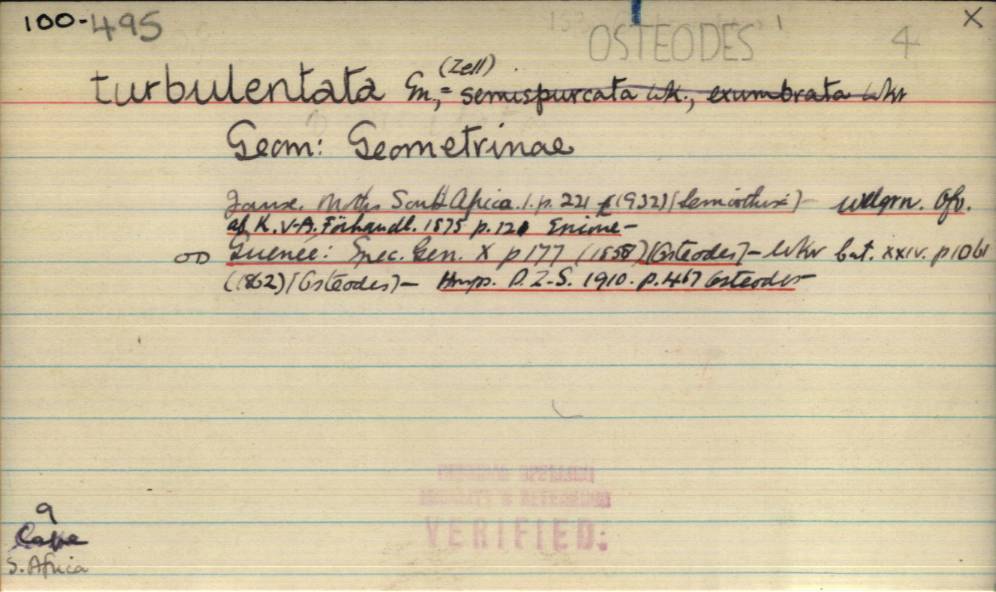 100-495
OSTEODES 4 X
turbulentata Gn, (Zell) = semispurcata Wk., exumbrata Wkr
Geom: Geometrinae
Janse. Moths South Africa. 1. p. 221 (1932) [Semiothisa] - Wllgrn. Öfv.
af K. V-A. Förhandl. 1875 p. 120 Enione-
Guenée: Spec. Gen. X p 177 (1858) [Osteodes] - Wkr Cat. XXIV. p 1061
(1862) [Osteodes] - Hmps. P.Z-S. 1910. p. 467 Osteodes
9
Cape
S. Africa
VERIFIED: